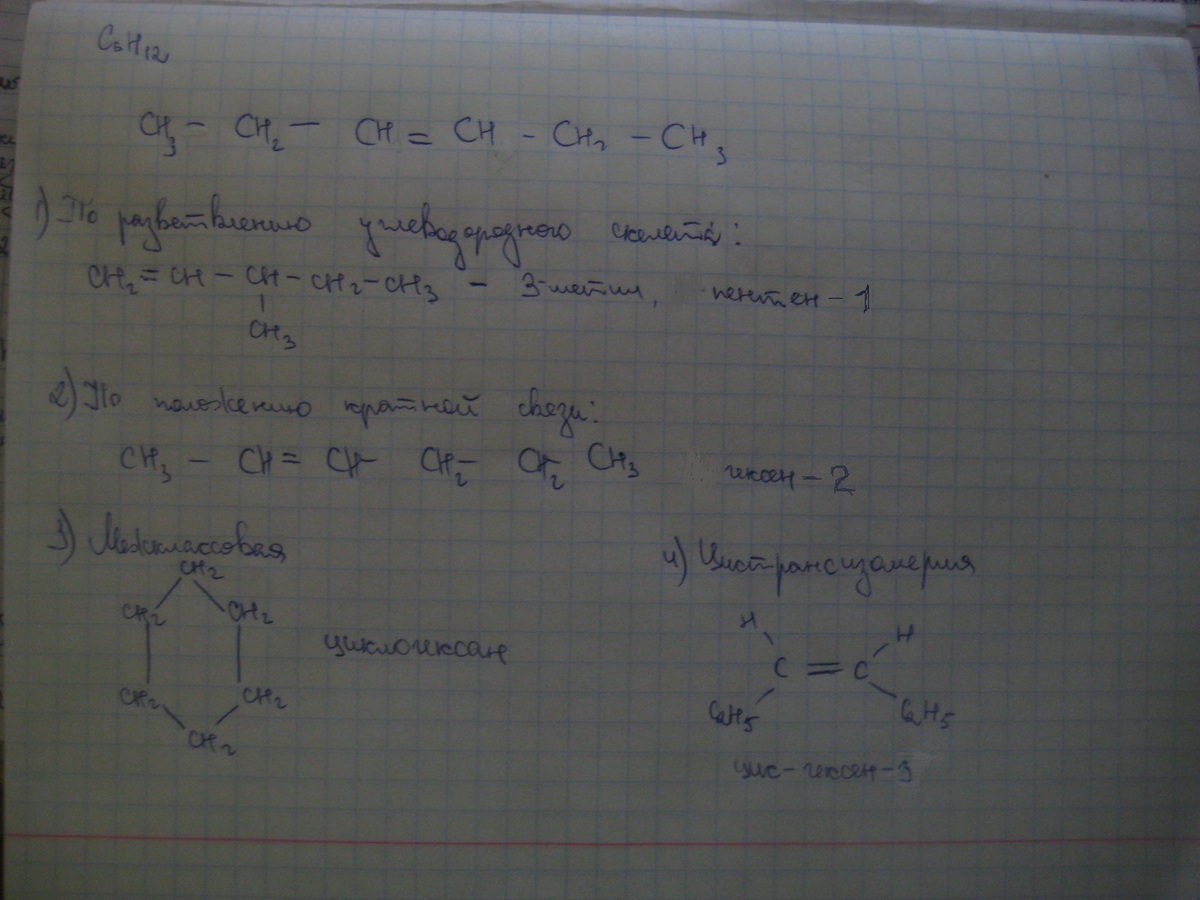 C₆H₁₂
CH₃ – CH₂ – CH = CH – CH₂ – CH₃
1) По разветвлению углеводородного скелета:
CH₂ = CH – CH – CH₂ – CH₃ – 3-метил, пентен – 1
CH₃
2) По положению кратной связи:
CH₃ – CH = CH – CH₂ – CH₂ CH₃ гексен – 2
3) Межклассовая
CH₂
CH₂ CH₂
CH₂ CH₂
CH₂
циклогексан
4) Цистрансизомерия
H H
C = C
C₂H₅ C₂H₅
цис – гексен – 3